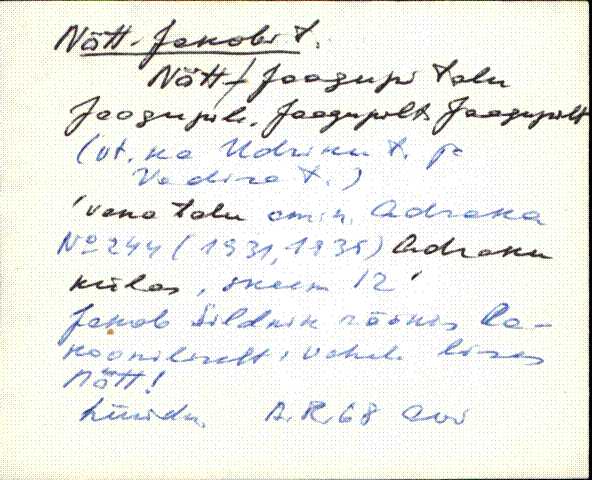 Nõtt-Jakobi t.
Nõtt-/Jaagupi talu
Jaagupile, Jaagupilt, Jaagupilt
(vt. ka Udriku t. ja
Vadira t.)
'vana talu omin. Adraka
Nº 244 (1931, 1935) Adraku
külas, skeem 12'
Jakob Sildnik rääkis la-
kooniliselt, vahele lises
nõtt!
Lüüdu, A.R. 68